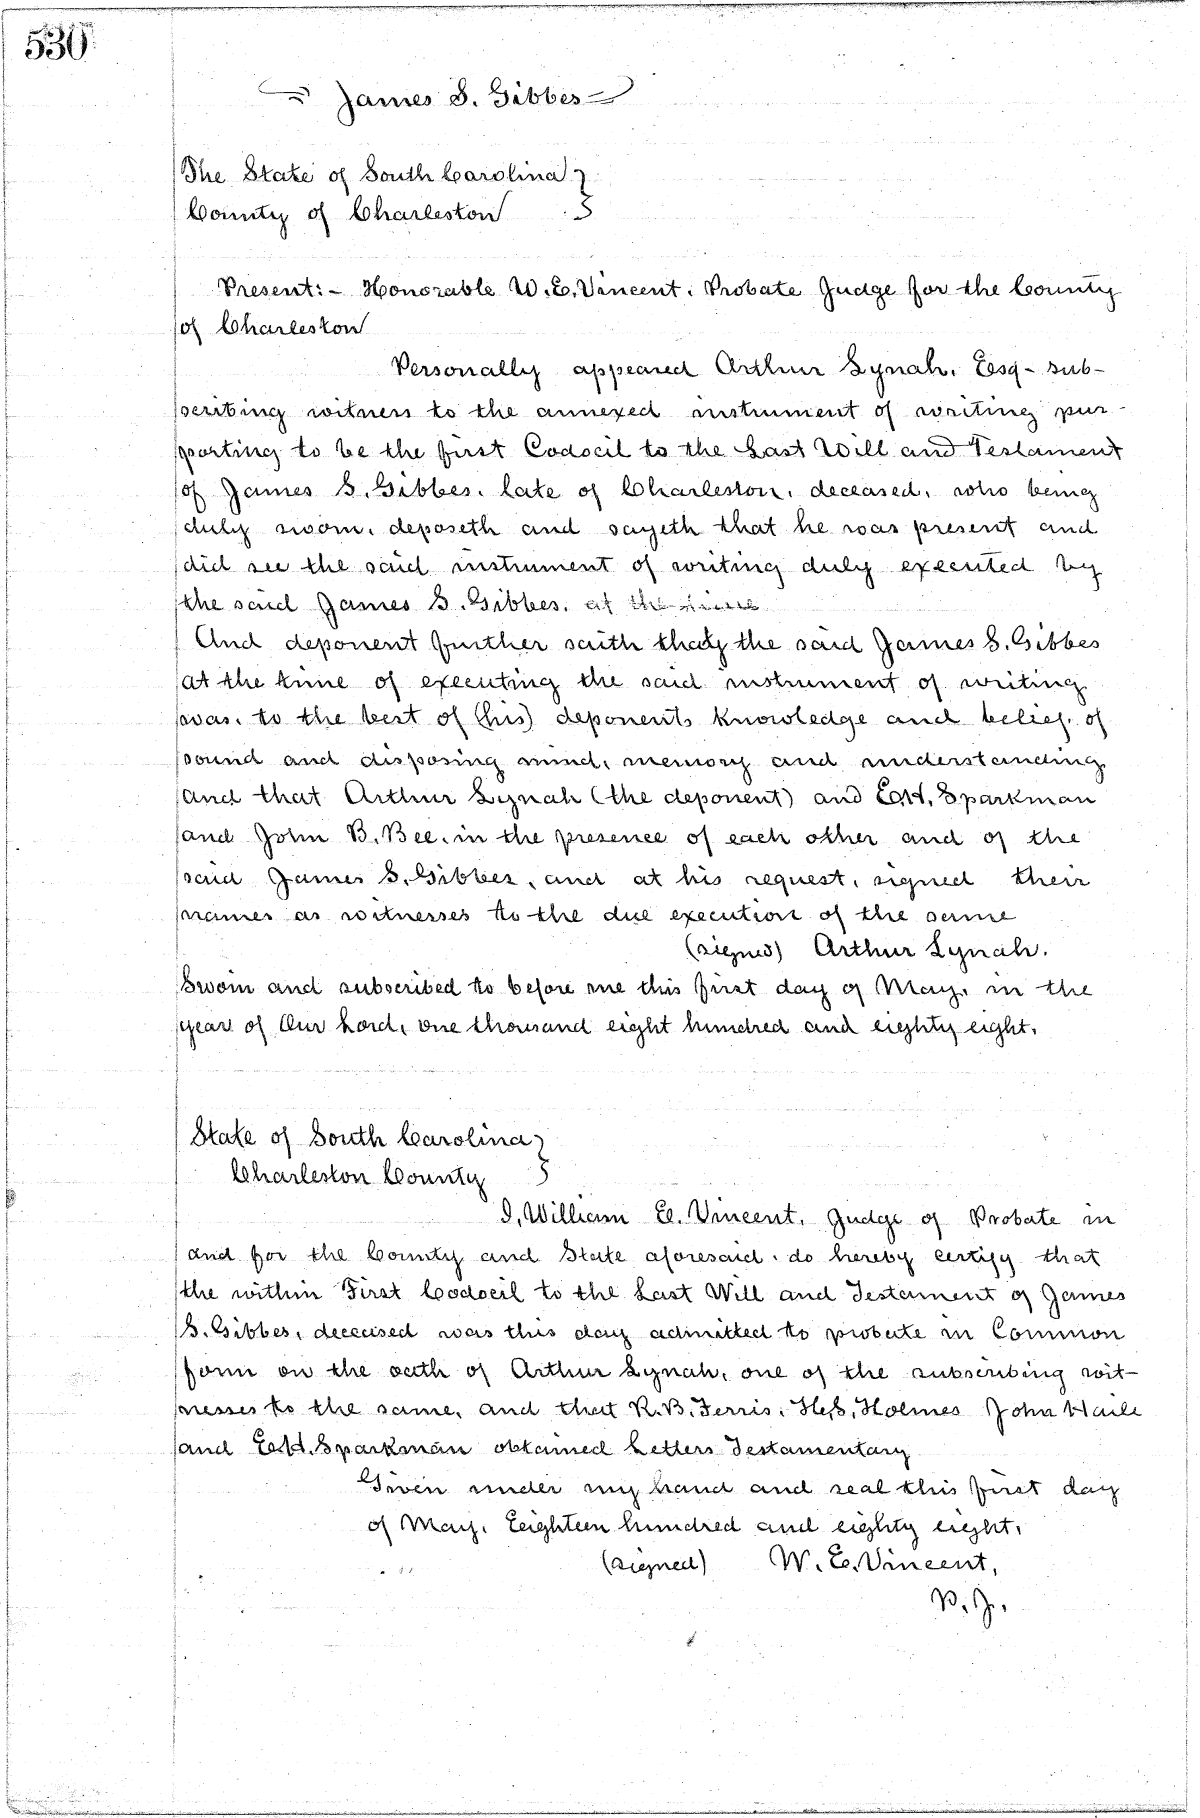 530
James S. Gibbes
The State of South Carolina }
County of Charleston }
Present:- Honorable W. E. Vincent. Probate Judge for the County
of Charleston
Personally appeared Arthur Lynah, Esq- sub-
scribing witness to the annexed instrument of writing pur-
porting to be the first Codocil to the Last Will and Testament
of James S. Gibbes. late of Charleston. deceased. who being
duly sworn. deposeth and sayeth that he was present and
did see the said instrument of writing duly executed by
the said James S. Gibbes. at the time
And deponent further saith that the said James S. Gibbes
at the time of executing the said instrument of writing
was. to the best of (his) deponents knowledge and belief. of
sound and disposing mind, memory and understanding
and that Arthur Lynah (the deponent) and E.H. Sparkman
and John B. Bee. in the presence of each other and of the
said James S. Gibbes, and at his request, signed their
names as witnesses to the due execution of the same
(signed) Arthur Lynah.
Sworn and subscribed to before me this first day of May, in the
year of Our Lord, one thousand eight hundred and eighty eight.
State of South Carolina }
Charleston County }
I, William E. Vincent, Judge of Probate in
and for the County and State aforesaid. do hereby certify that
the within First Codocil to the Last Will and Testament of James
S. Gibbes, deceased was this day admitted to probate in Common
form on the oath of Arthur Lynah, one of the subscribing wit-
nesses to the same, and that R. B. Ferris. Holmes John Haile
and E.H. Sparkman obtained Letters Testamentary
Given under my hand and seal this first day
of May. Eighteen hundred and eighty eight.
(signed) W. E. Vincent,
P. J.